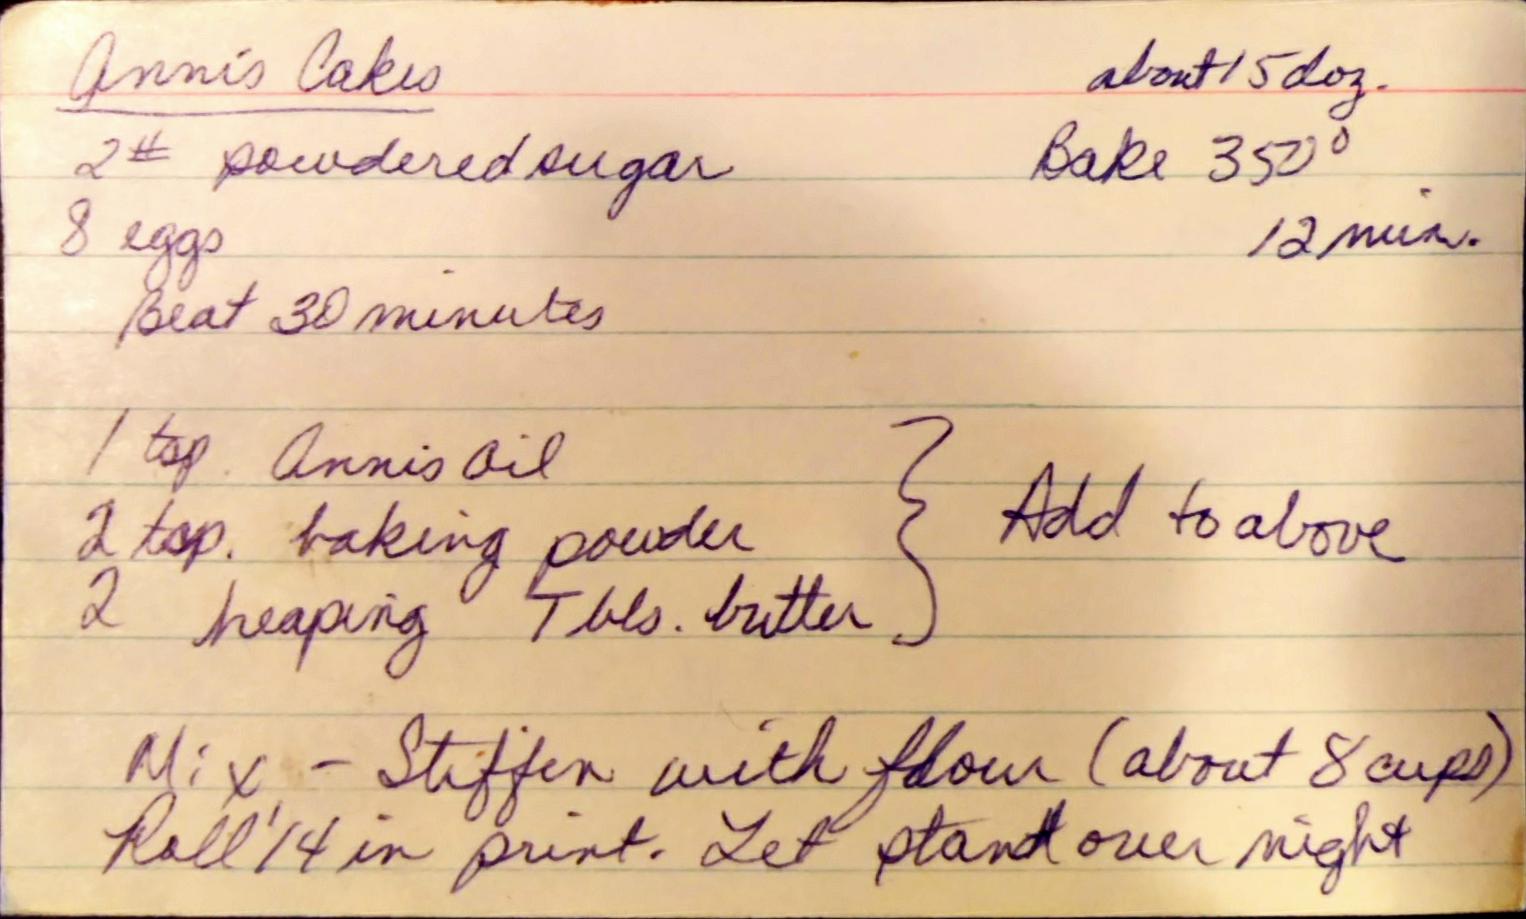 Annis Cakes
about 15 doz.
2# powdered sugar
Bake 350°
8 eggs
12 min.
Beat 30 minutes
1 tsp. Annis Oil
2 tsp. baking powder
2 heaping Tbls. butter
} Add to above
Mix - Stiffen with flour (about 8 cups)
Roll 1/4 in print. Let stand over night